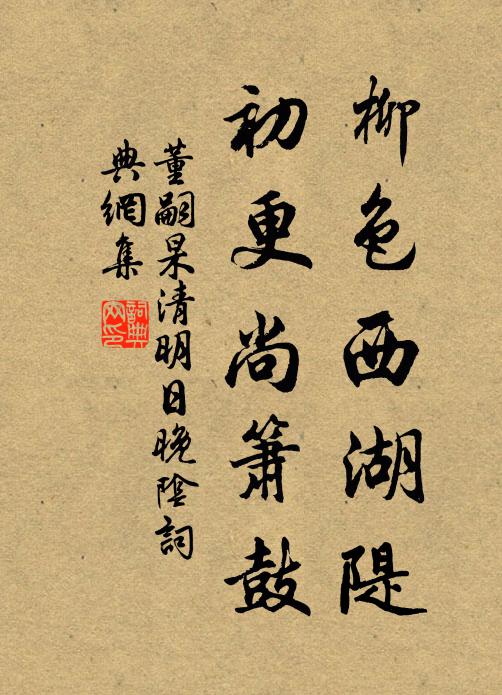 柳色西湖隄
初更尚簫鼓
董嗣杲清明日晚陰詞
典網集
詞典網印